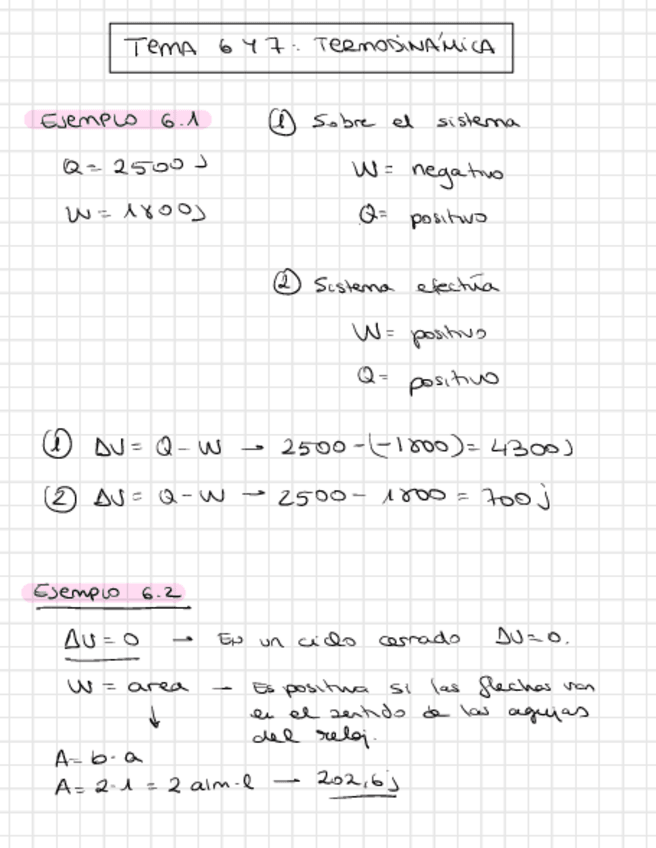 TEMA 6 Y 7: TERMODINÁMICA
EJEMPLO 6.1
Q = 2500 J
W = 1800 J
① Sobre el sistema
W = negativo
Q = positivo
② Sistema efectúa
W = positivo
Q = positivo
① ΔU = Q - W → 2500 - (-1800) = 4300 J
② ΔU = Q - W → 2500 - 1800 = 700 j
EJEMPLO 6.2
ΔU = 0 → En un ciclo cerrado ΔU = 0.
W = area → Es positiva si las flechas van
en el sentido de las agujas
del reloj.
↓
A = b · a
A = 2 · 1 = 2 atm · l → 202,6 j